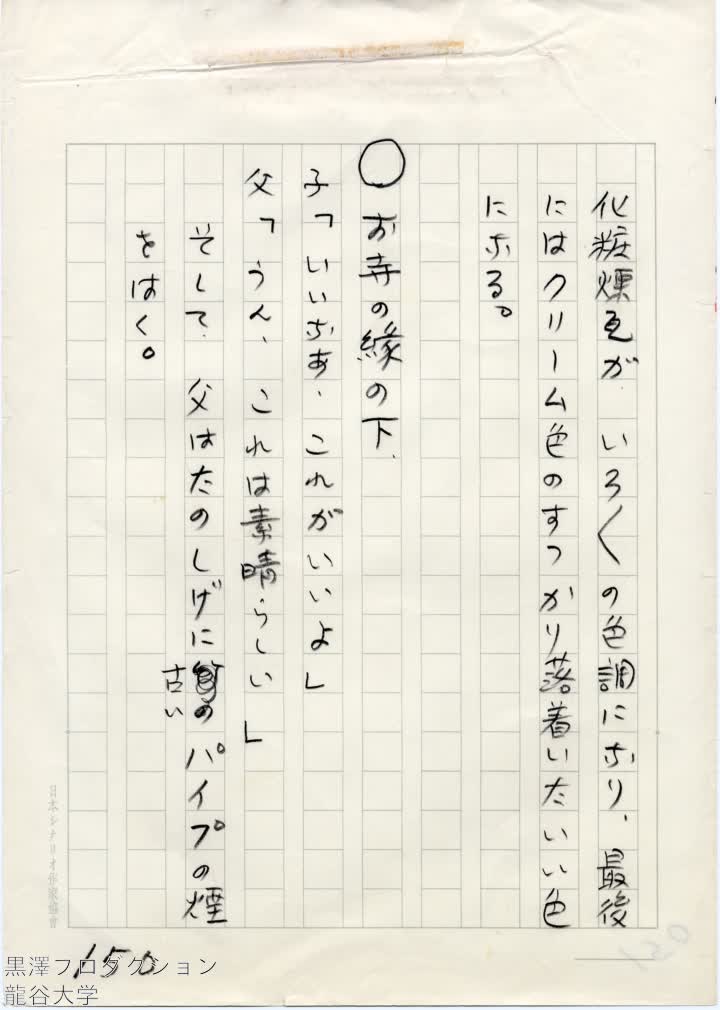 化粧煉瓦が、いろ〱の色調になり、最後
にはクリーム色のすつかり落着いたいい色
になる。
○お寺の縁の下、
子「いいなあ、これがいいよ」
父「うん、これは素晴らしい」
そして、父はたのしげに古いパイプの煙
をはく。
日本シナリオ作家協會
150
黒澤プロダクション
龍谷大学